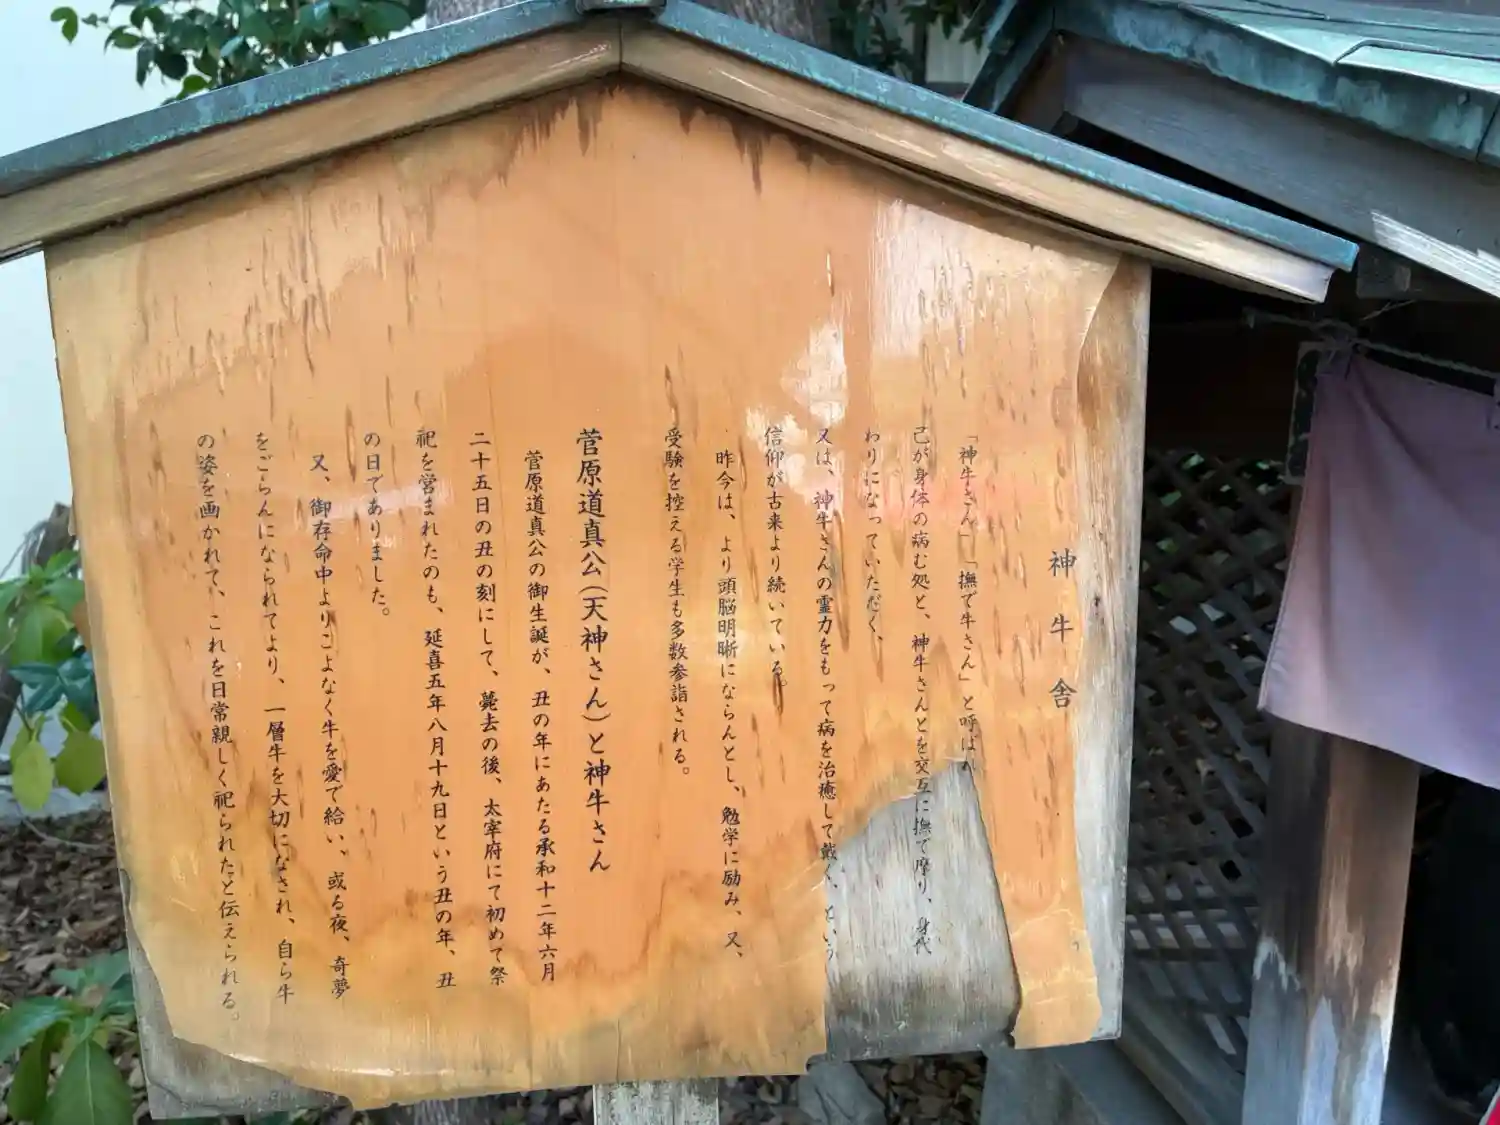 神牛舎
「神牛さん」「撫で牛さん」と呼ば
己が身体の病む処と、神牛さんとを交互に撫で摩り、身代
わりになっていただく、
又は、神牛さんの霊力をもって病を治癒して戴く、という
信仰が古来より続いている。
昨今は、より頭脳明晰にならんとし、勉学に励み、又、
受験を控える学生も多数参詣される。
菅原道真公(天神さん)と神牛さん
菅原道真公の御生誕が、丑の年にあたる承和十二年六月
二十五日の丑の刻にして、薨去の後、太宰府にて初めて祭
祀を営まれたのも、延喜五年八月十九日という丑の年、丑
の日でありました。
又、御存命中よりこよなく牛を愛で給い、或る夜、奇夢
をごらんになられてより、一層牛を大切になされ、自ら牛
の姿を画かれて、これを日常親しく祀られたと伝えられる。